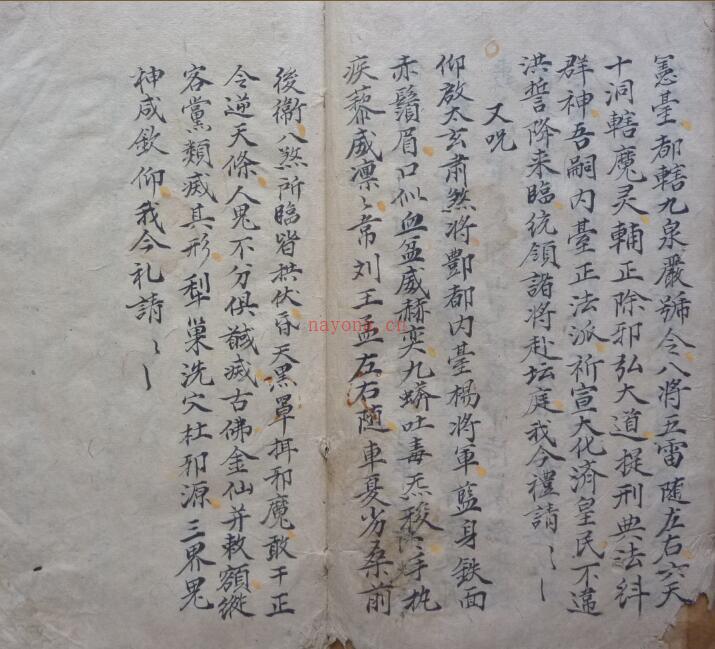 憲臺都轄九泉嚴號令八將五雷随左右六天
十洞轄魔灵輔正除邪弘大道捉刑典法糾
群神吾嗣内臺正法派祈宣大化済皇民不違
洪誓降来臨統領諸將赴坛庭我今禮請〻〻
又咒
仰啟太玄肅煞將酆都内臺楊將軍藍身鉄面
赤鬚眉口似血盆威赫奕九蟒吐毒炁 手执
疾藜威凛〻常刘王孟左右随車夏劣桑前
後衛八煞所臨皆拱伏昏天黑罩掛邪魔敢干正
令逆天條人鬼不分俱馘滅古佛金仙并敕額縱
容黨類滅其形犁巢洗穴杜邪源三界鬼
神咸欽仰我今礼請〻〻
nayona.cn